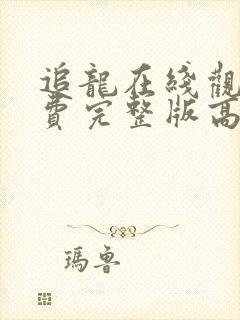 追龍在綫觀
費完整版高
瑪魯